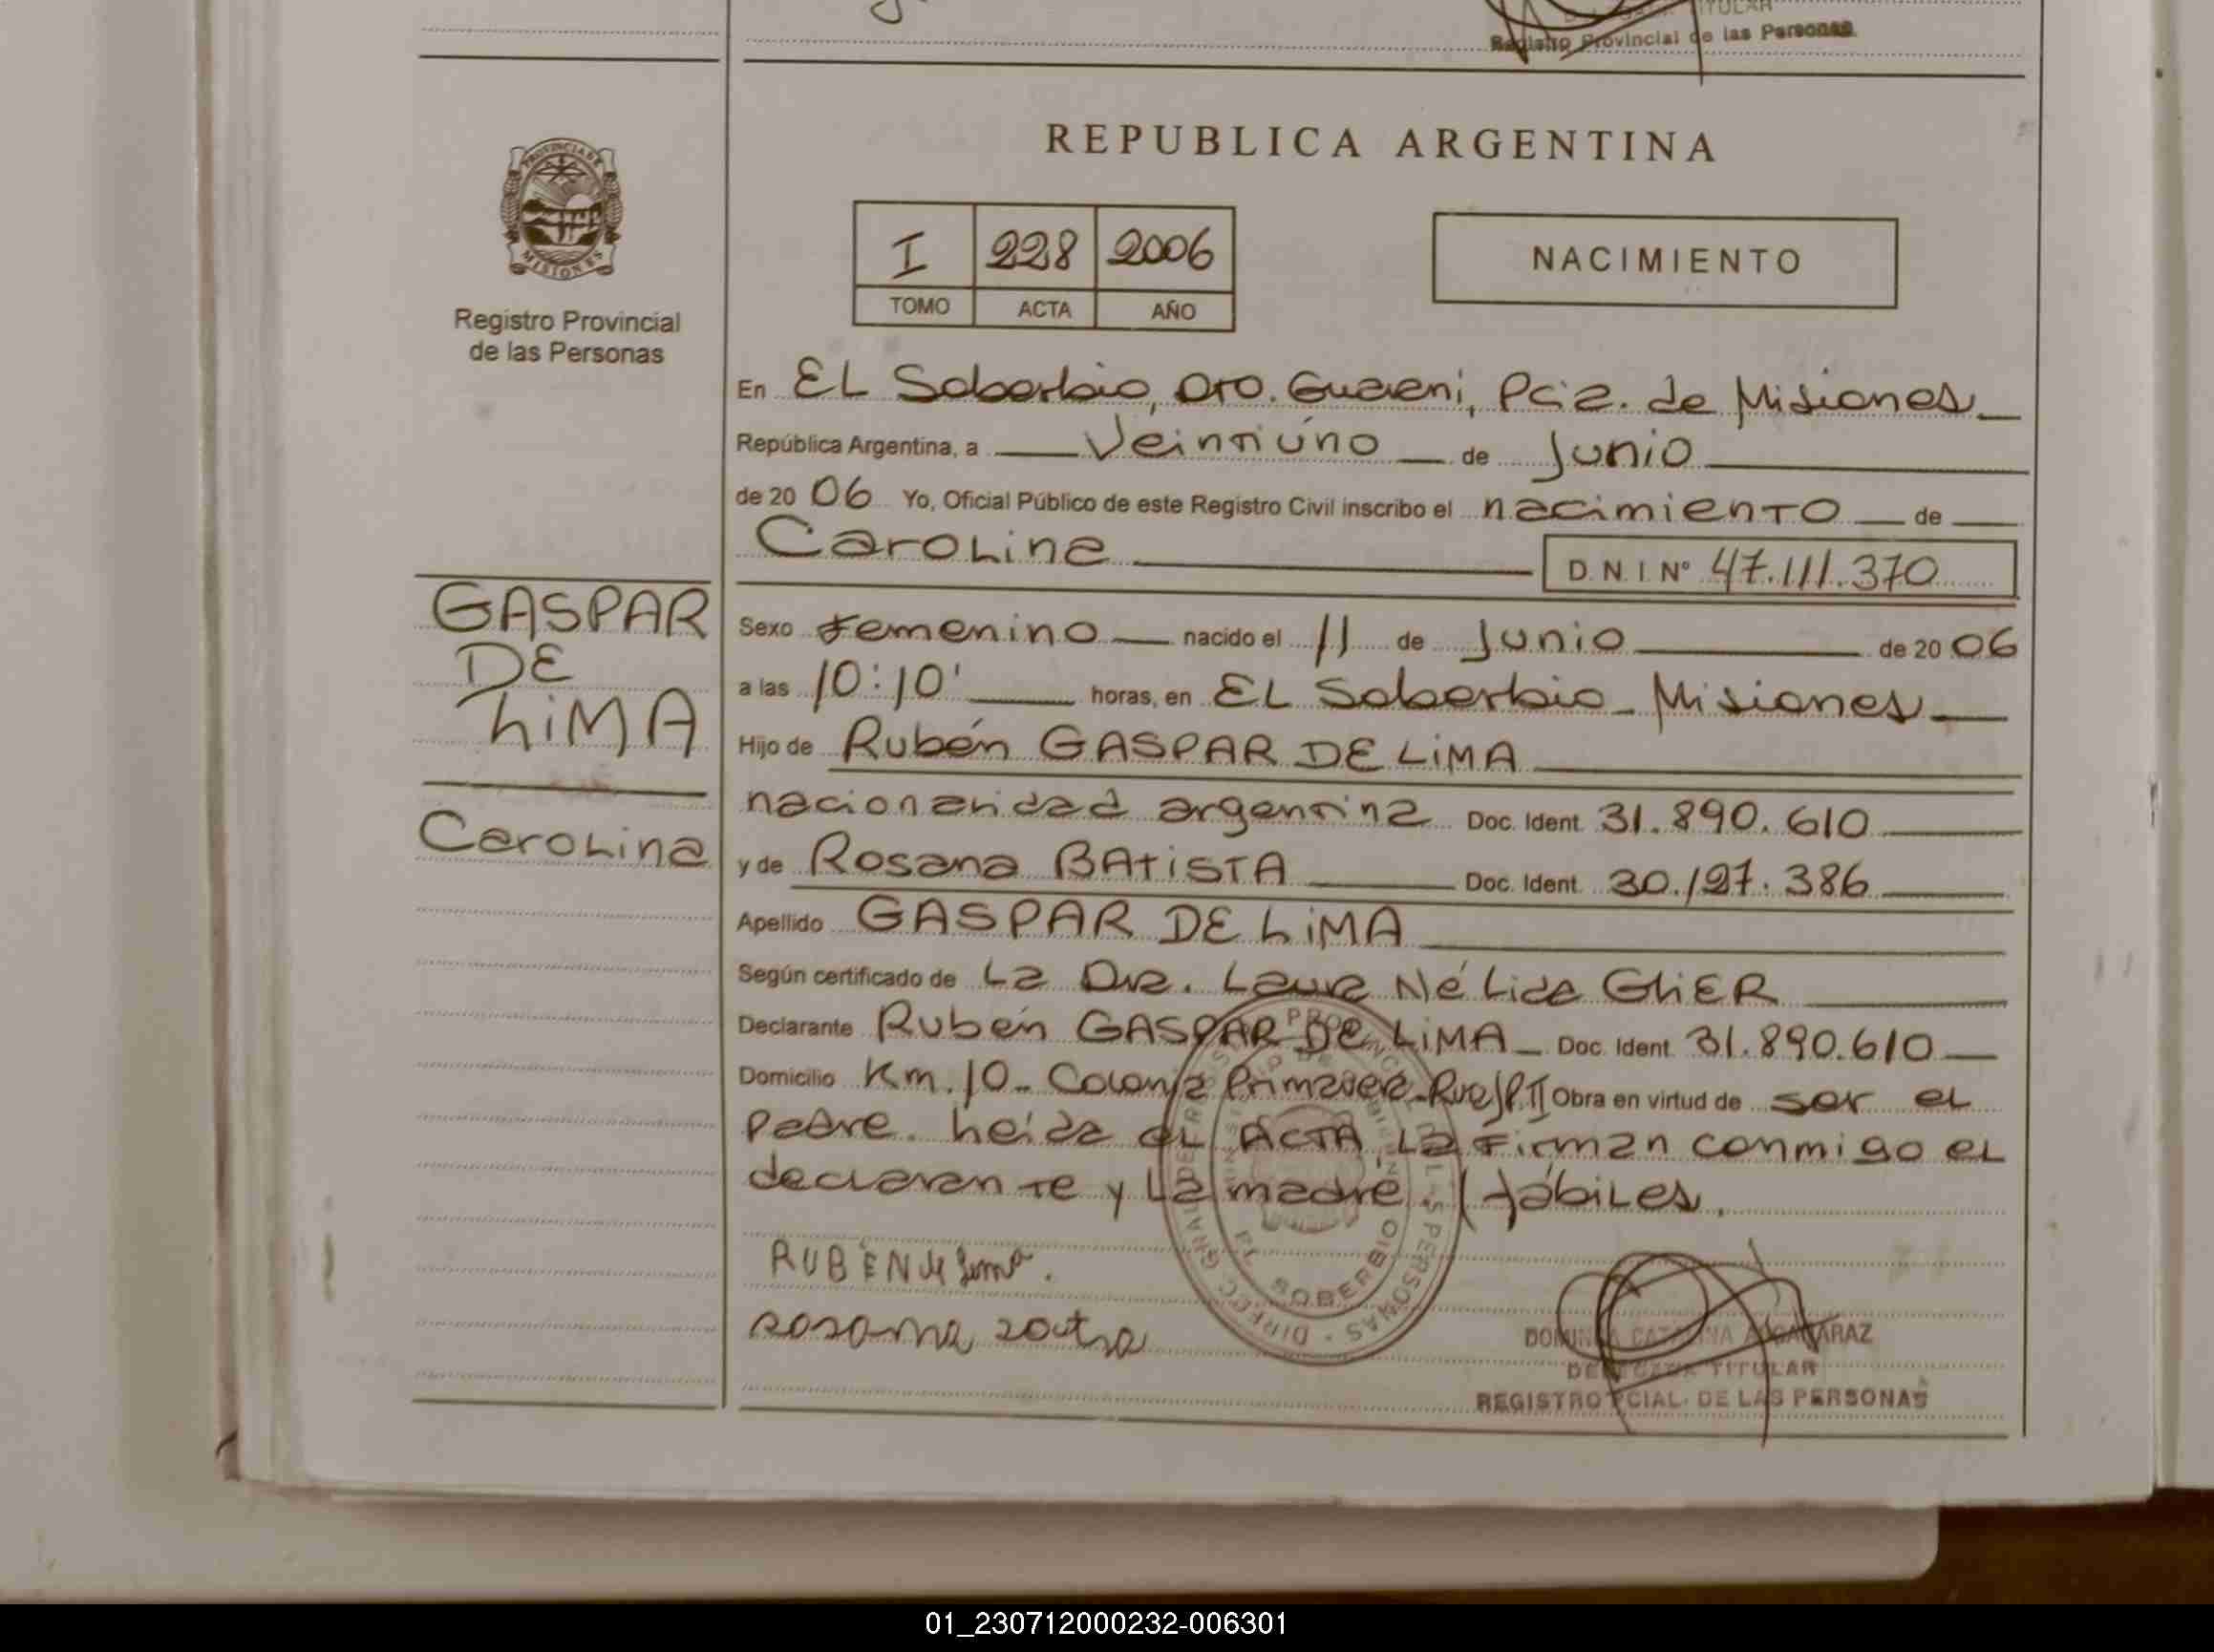 TITULAR
Registro Provincial de las Personas
PROVINCIA DE
MISIONES
Registro Provincial
de las Personas
REPUBLICA ARGENTINA
I 228 2006
TOMO ACTA AÑO
NACIMIENTO
En EL Soberbio, Dto. Guarani, Pcia. de Misiones
República Argentina, a Veintiuno de Junio
de 2006 Yo, Oficial Público de este Registro Civil inscribo el nacimiento de
Carolina D.N.I. Nº 47.111.370
GASPAR
DE
LiMA
Carolina
Sexo Femenino nacido el 11 de Junio de 2006
a las 10:10' horas, en EL Soberbio - Misiones
Hijo de Rubén GASPAR DE LiMA
nacionalidad argentina Doc. Ident. 31.890.610
y de Rosana BATiSTA Doc. Ident. 30.197.386
Apellido GASPAR DE LiMA
Según certificado de La Dra. Laura Nélida GLiER
Declarante Rubén GASPAR DE LiMA Doc. Ident. 31.890.610
Domicilio Km. 10 - Colonia Primavera Obra en virtud de ser el
Padre. Leida el ACTA, La Firman conmigo el
declarante y La madre. Hábiles.
RUBÉN de Lima.
rosana
EL SOBERBIO
DIREC. GRAL. DEL REGISTRO PROVINCIAL DE LAS PERSONAS
DOMINGA CATALINA ALCARAZ
DELEGADA TITULAR
REGISTRO PCIAL. DE LAS PERSONAS
01_230712000232-006301